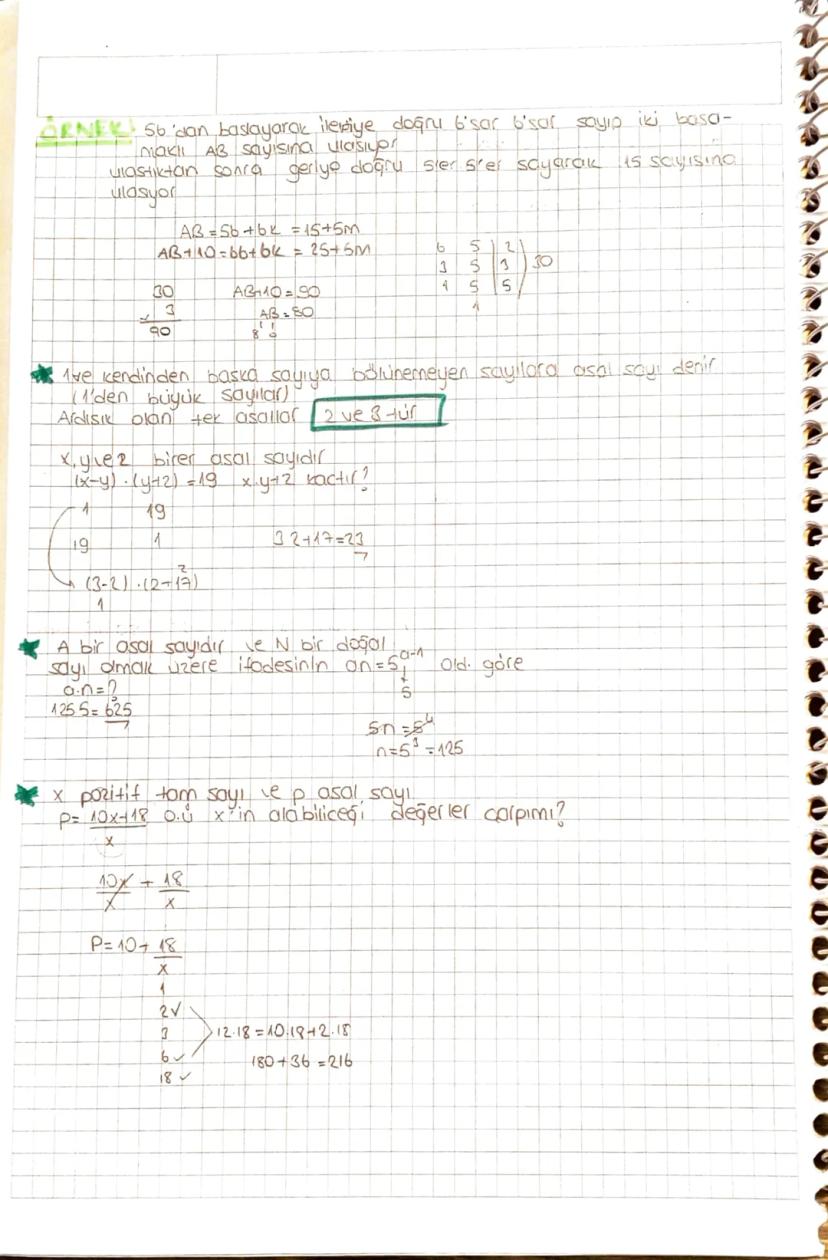 ÖRNEK: 56'dan başlayarak ileriye doğru 6'şar 6'şar sayıp iki basa-
maklı AB sayısına ulaşıyor
ulaştıktan sonra geriye doğru 5'er 5'er sayarak 15 sayısına
ulaşyor
AB = 56+6k = 15+5m
AB+10=66+6k = 25+5m
6 5 | 2
3 5 | 3 ) 30
1 5 | 5
1
30 AB+10=90
x 3 AB=80
90 8 0
★ 1 ve kendinden başka sayıya bölünemeyen sayılara asal sayı denir
(1'den büyük sayılar)
Ardışık olan tek asallar 2 ve 3 tür
x, y ve z birer asal sayıdır
(x-y) . (y+z) = 19 x.y+z kaçtır?
1 19
19 1 3 2+17=23
(3-2) . (2+17)
z
1
★ A bir asal sayıdır ve N bir doğal
sayı olmak üzere ifadesinin an=5^a-1 old. göre
5
a.n=?
125 5= 625
5n = 5^4
n=5^3 = 125
★ x pozitif tam sayı ve p asal sayı
P= 10x+18 / x o.ü x'in alabiliceği değerler çarpımı?
10x / x + 18 / x
P= 10+ 18 / x
1
2✓
3 12.18 = 10.18+2.18
6✓ 180+36 = 216
18 ✓